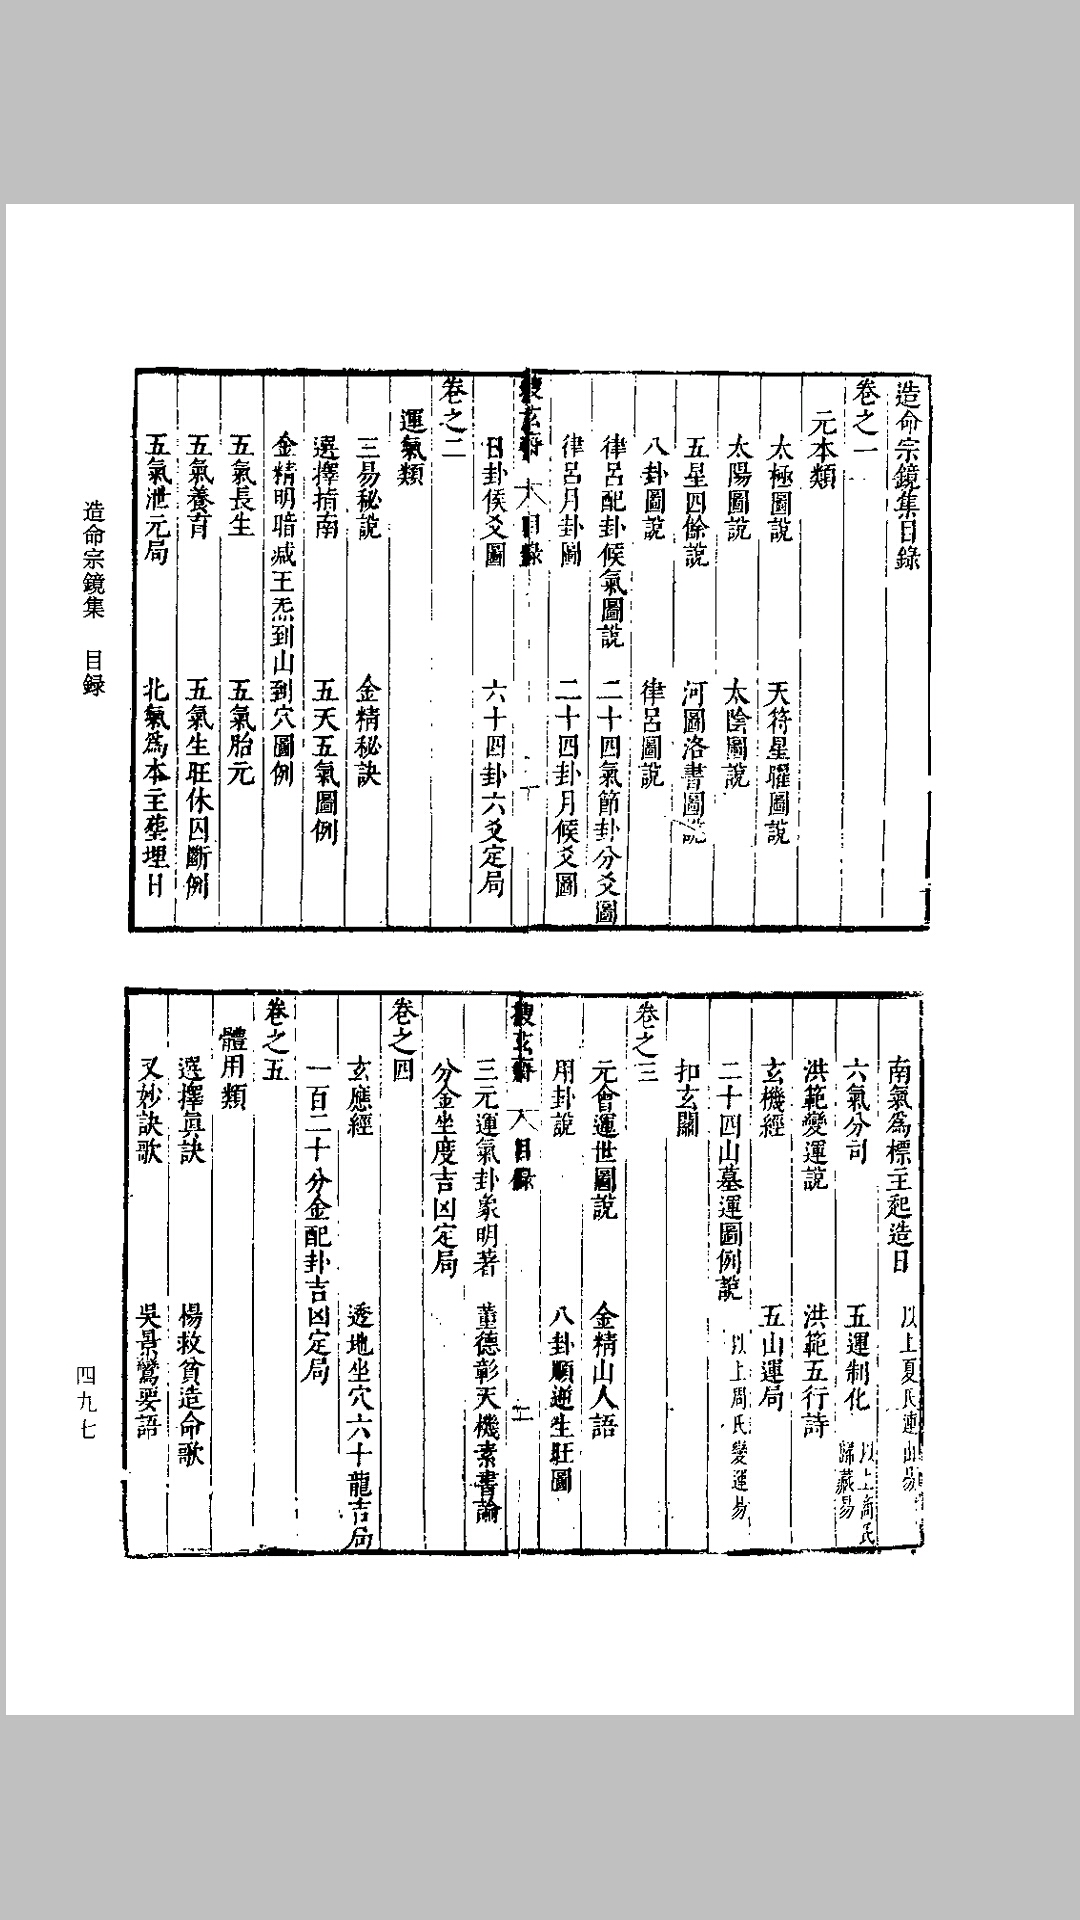 造命宗鏡集目錄
卷之一
元本類
太極圖說 天符星曜圖說
太陽圖說 太陰圖說
五星四餘說 河圖洛書圖說
八卦圖說 律呂圖說
律呂配卦候氣圖說 二十四氣節卦分爻圖
律呂月卦圖 二十四卦月候爻圖
搜玄齋 目錄 一
日卦候爻圖 六十四卦六爻定局
卷之二
運氣類
三易秘說 金精秘訣
選擇指南 五天五氣圖例
金精明暗減王炁到山到穴圖例
五氣長生 五氣胎元
五氣養育 五氣生旺休囚斷例
五氣泄元局 北氣為本主塟埋日
南氣為標主起造日 以上夏氏連山易
六氣分司 五運制化 以上商氏歸藏易
洪範變運說 洪範五行詩
玄機經 五山運局
二十四山墓運圖例說 以上周氏變運易
扣玄關
卷之三
元會運世圖說 金精山人語
用卦說 八卦順逆生旺圖
搜玄齋 目錄 二
三元運氣卦象明著 董德彰天機素書論
分金坐度吉凶定局
卷之四
玄應經 透地坐穴六十龍吉局
一百二十分金配卦吉凶定局
卷之五
體用類
選擇真訣 楊救貧造命歌
又妙訣歌 吳景鸞要語
造命宗鏡集 目録
四九七